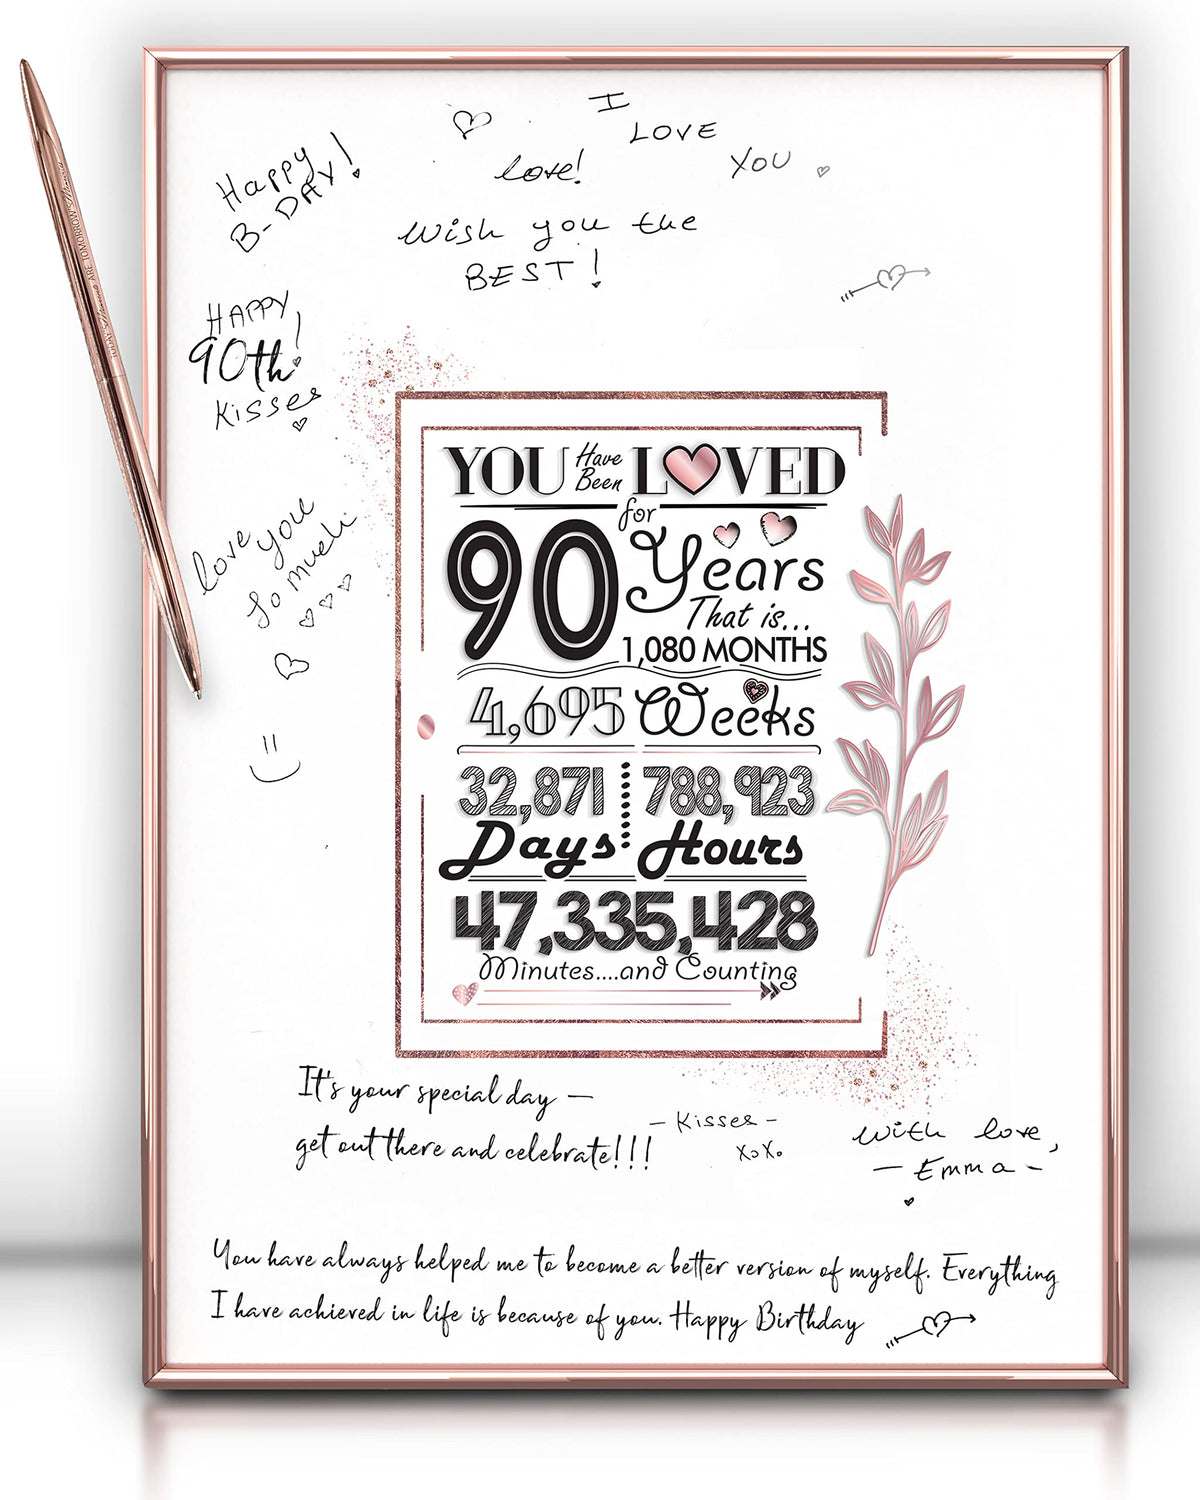 I
LOVE
YOU
love!
Happy
B-DAY!
Wish you the
BEST!
HAPPY
90th!
Kisses
love you
so much
YOU Have Been LOVED
for
90 Years
That is...
1,080 MONTHS
4,695 Weeks
32,871 Days
788,923 Hours
47,335,428
Minutes....and Counting
It's your special day —
get out there and celebrate!!!
- Kisses -
XoXo
With love,
- Emma -
You have always helped me to become a better version of myself. Everything
I have achieved in life is because of you. Happy Birthday